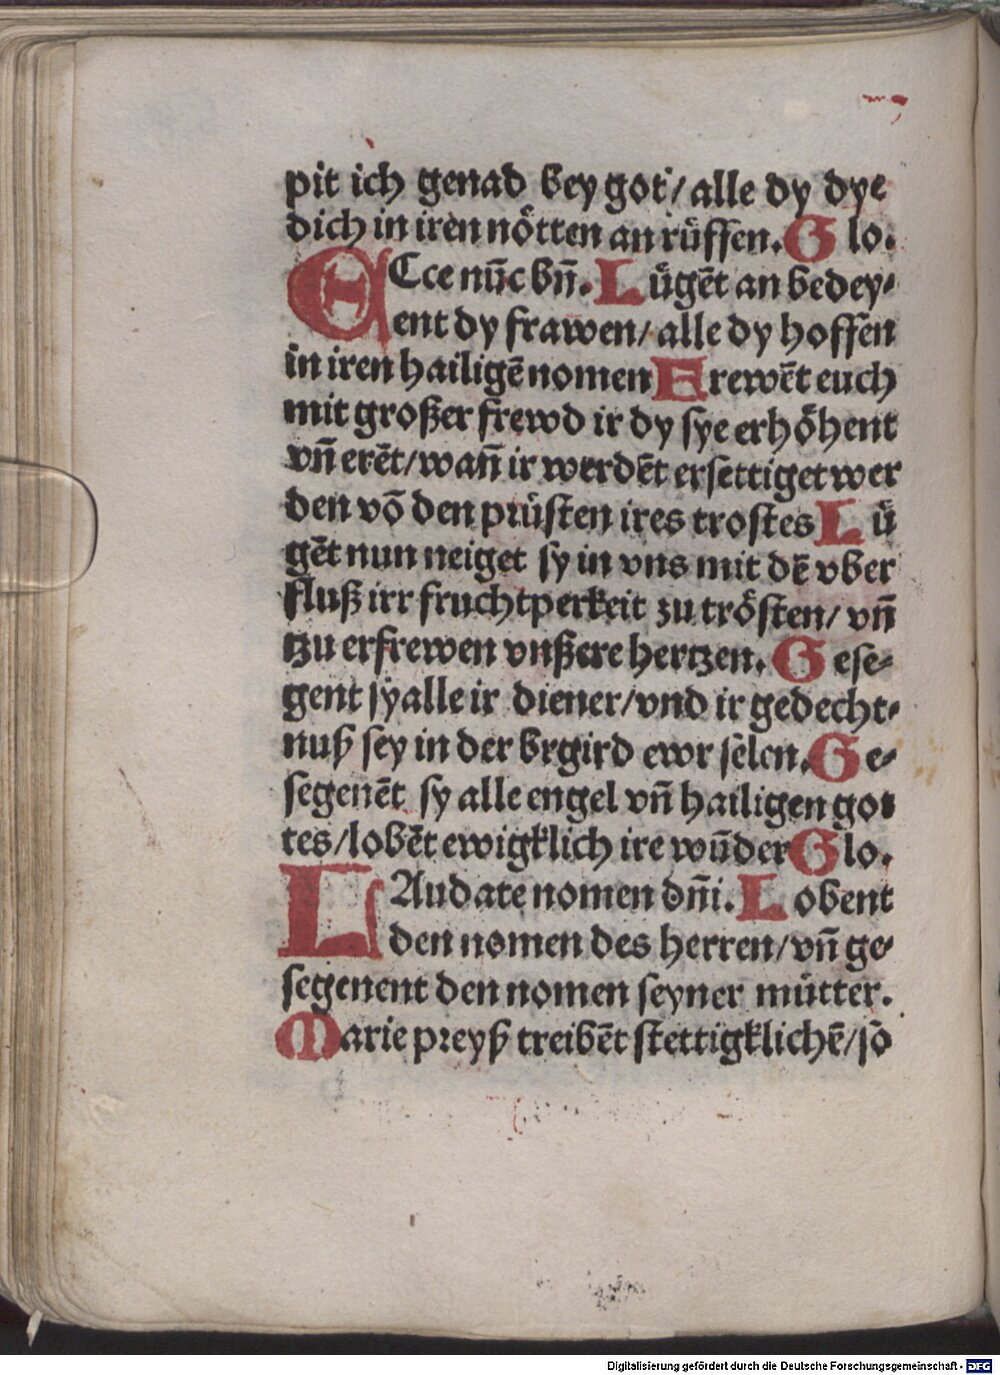 pit ich genad bey got/ alle dy dye
dich in iren nötten an rüffen. Glo.
ECce nūc bn̄. Lügēt an bedey-
ent dy frawen/ alle dy hoffen
in iren hailigē nomen Erewēt euch
mit großer frewd ir dy sye erhöhent
vn̄ erēt/wan̄ ir werdēt ersettiget wer
den vō den prüsten ires trostes Lü
gēt nun neiget sy in vns mit dē vber
fluß irr fruchtperkeit zu trösten/ vn̄
tzu erfrewen vnßere hertzen. Gese-
gent sy alle ir diener/vnd ir gedecht-
nuß sey in der brgird ewr selen. Ge-
segenēt sy alle engel vn̄ hailigen got
tes/lobēt ewigklich ire wūder Glo.
LAudate nomen dn̄i. Lobent
den nomen des herren/vn̄ ge-
segenent den nomen seyner mütter.
Marie preyß treibēt stettigklichē/so
Digitalisierung gefördert durch die Deutsche Forschungsgemeinschaft - DFG